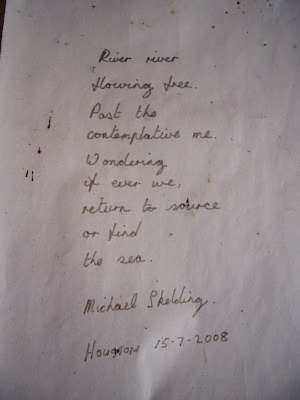 River river
flowing free.
Past the
contemplative me.
Wondering
if ever we,
return to source
or find
the sea.
Michael Skelding.
HOUGTON 15-7-2008